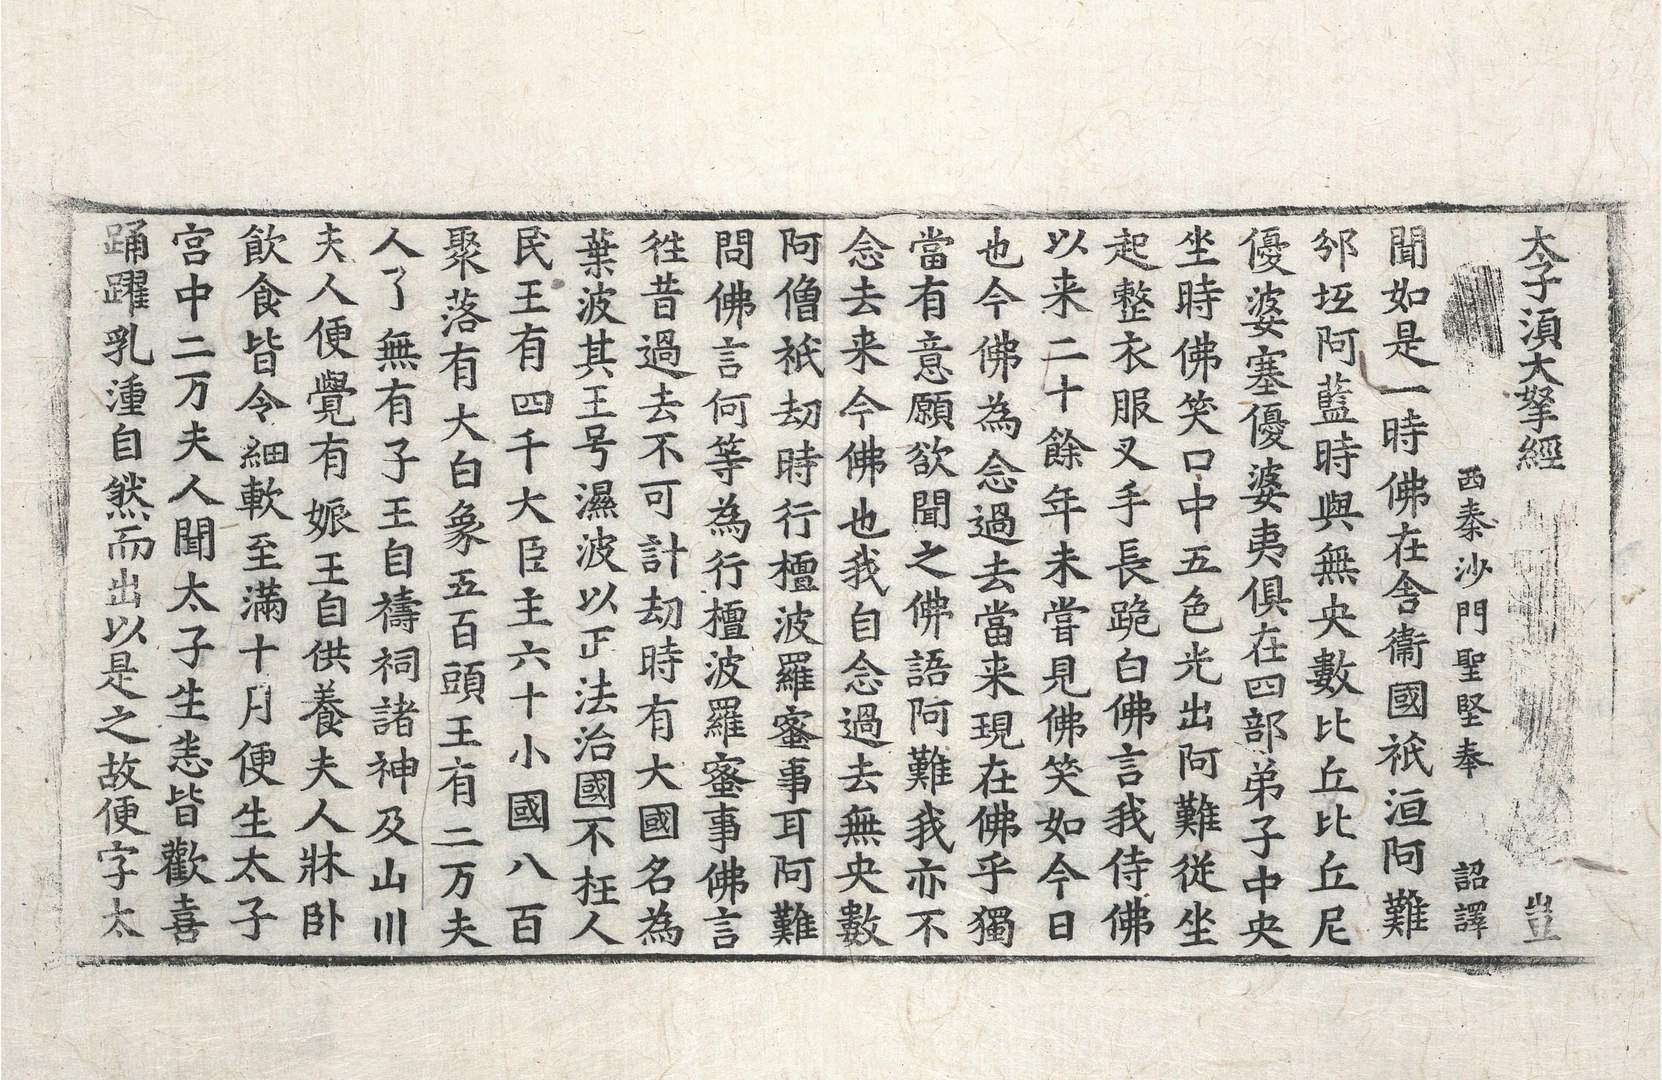 太子湏大拏經 豈
西秦沙門聖堅奉 詔譯
聞如是一時佛在舎衞國祇洹阿難
邠坻阿藍時與無央數比丘比丘尼
優婆塞優婆夷俱在四部弟子中央
坐時佛笑口中五色光出阿難從坐
起整衣服叉手長跪白佛言我侍佛
以来二十餘年未嘗見佛笑如今日
也今佛為念過去當来現在佛乎獨
當有意願欲聞之佛語阿難我亦不
念去来今佛也我自念過去無央數
阿僧祇劫時行檀波羅蜜事耳阿難
問佛言何等為行檀波羅蜜事佛言
徃昔過去不可計劫時有大國名為
葉波其王号濕波以正法治國不枉人
民王有四千大臣主六十小國八百
聚落有大白象五百頭王有二万夫
人了無有子王自禱祠諸神及山川
夫人便覺有娠王自供養夫人牀卧
飲食皆令細軟至滿十月便生太子
宫中二万夫人聞太子生恙皆歡喜
踊躍乳湩自然而出以是之故便字太